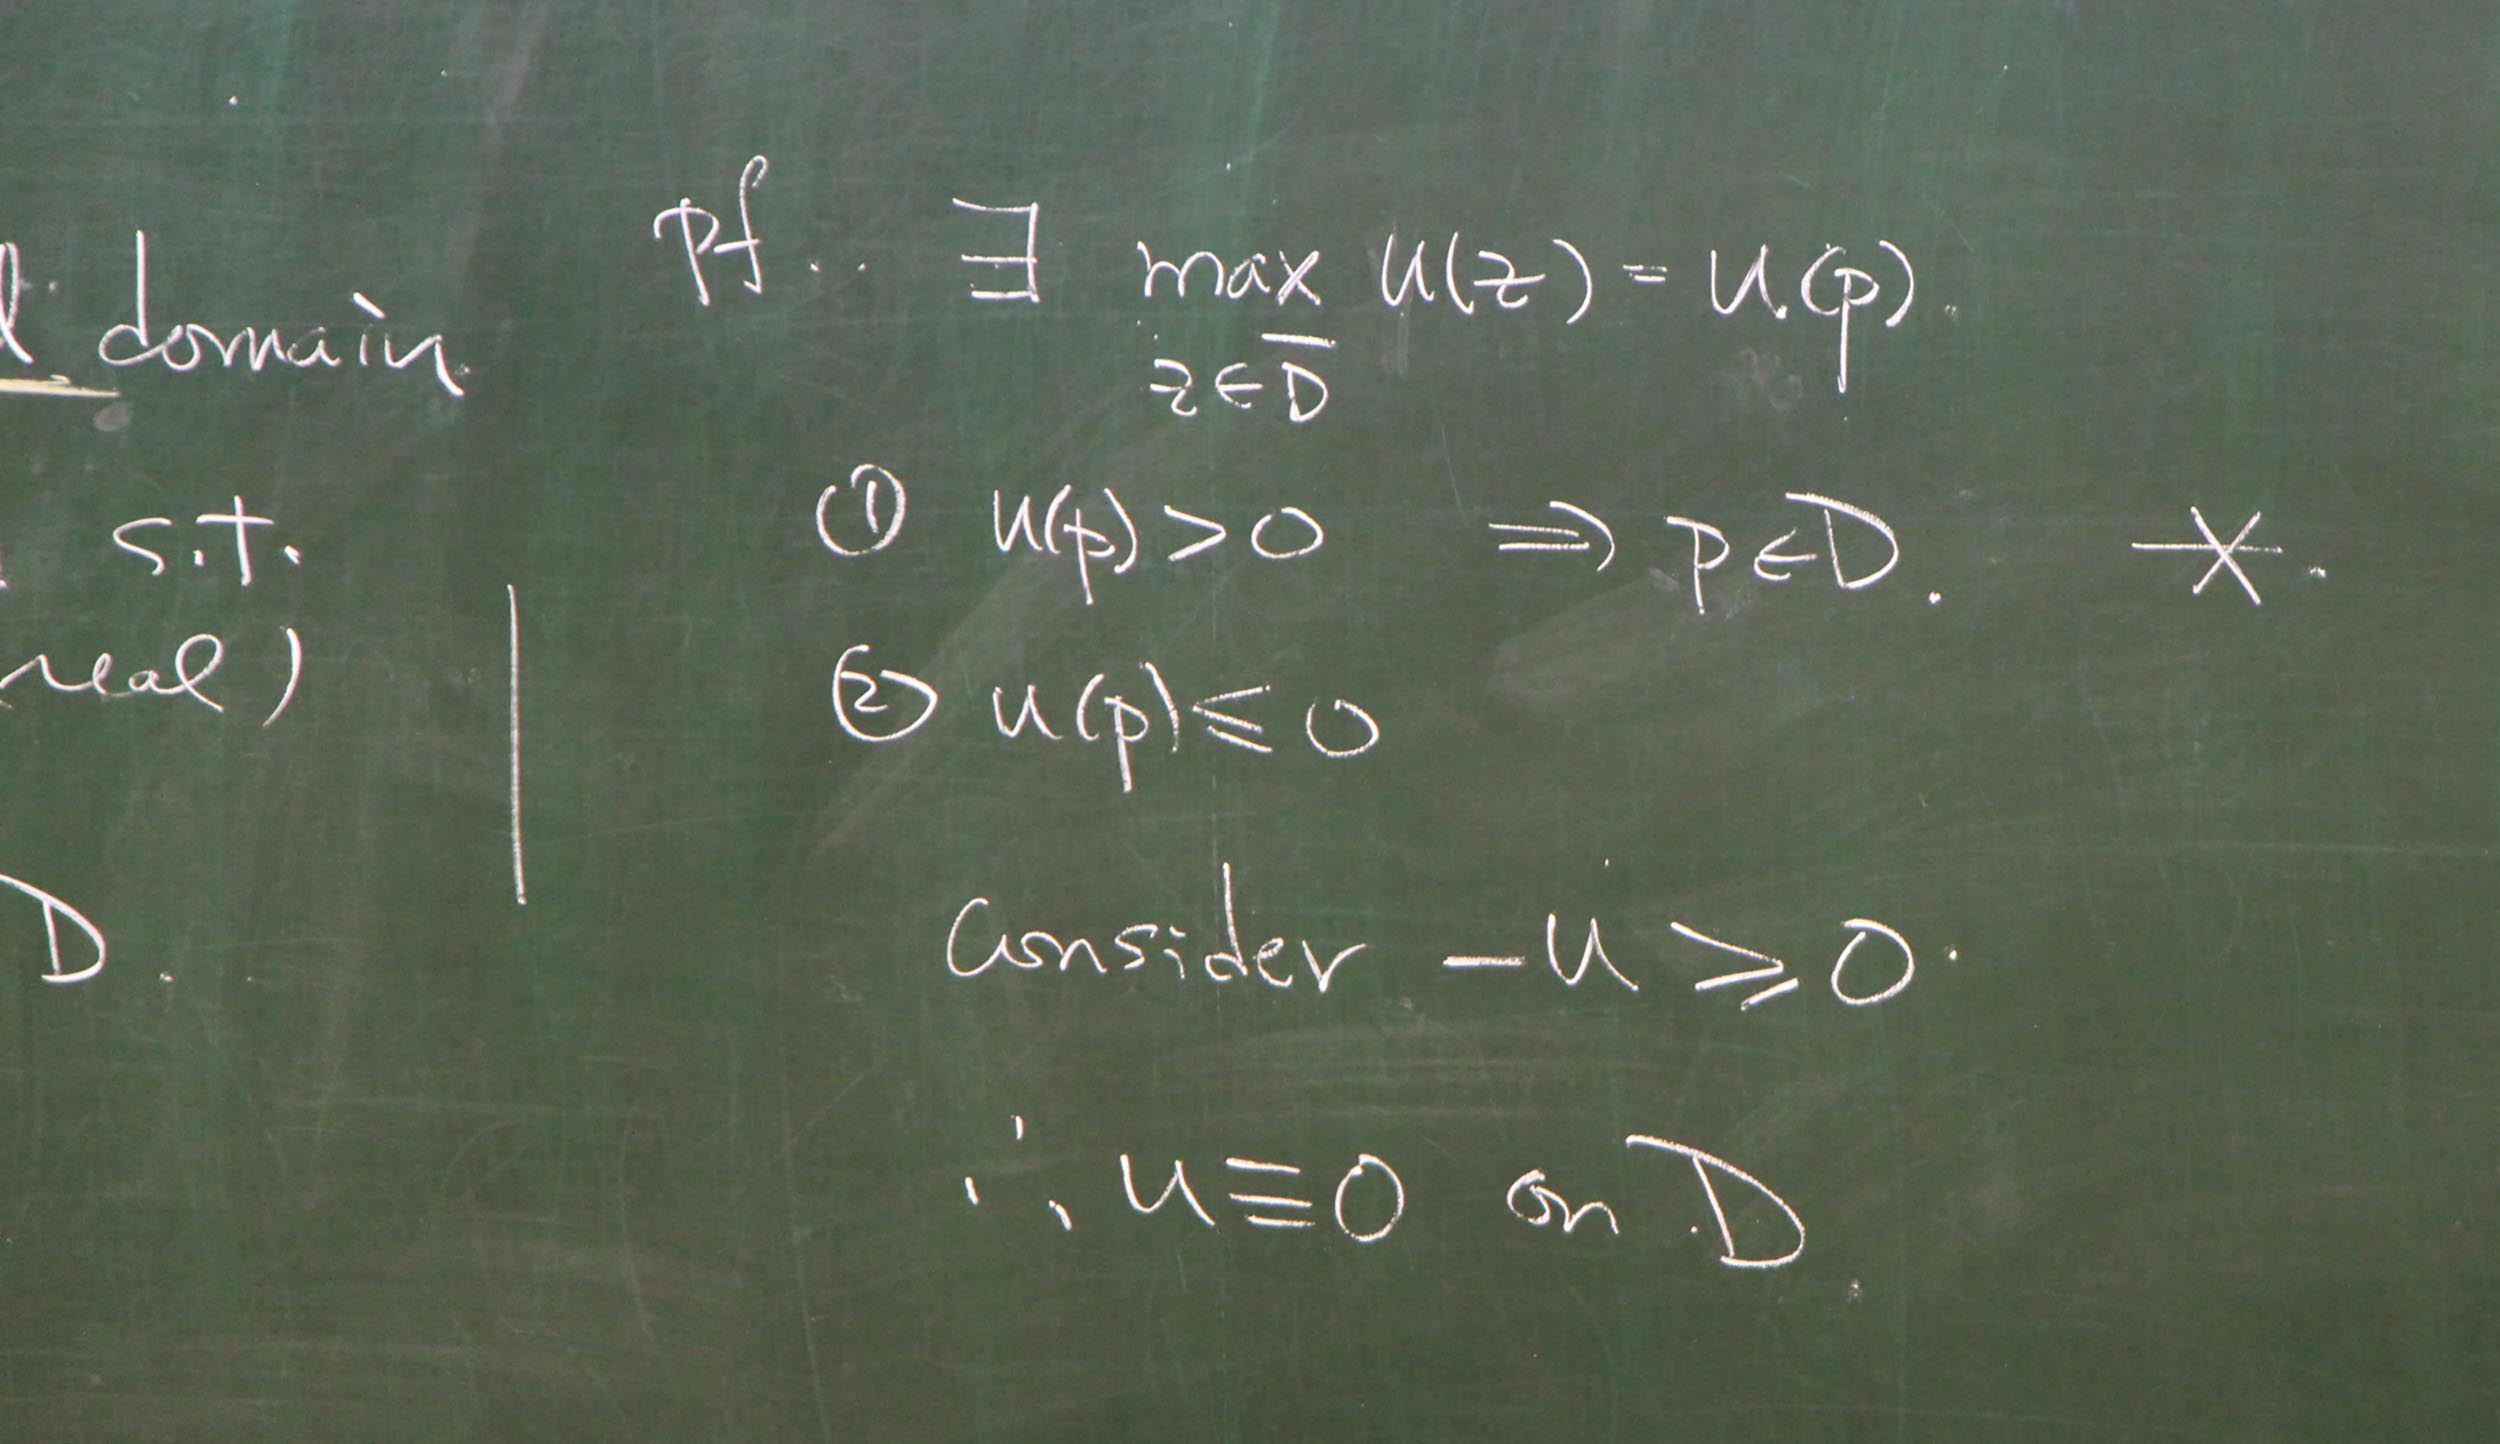 domain
s.t.
real)
D.
pf. ∃ max u(z) = u(p).
z∈D̅
① u(p) > 0 ⇒ p∈D. ※.
② u(p) ≤ 0
Consider -u ≥ 0.
∴ u ≡ 0 on D.